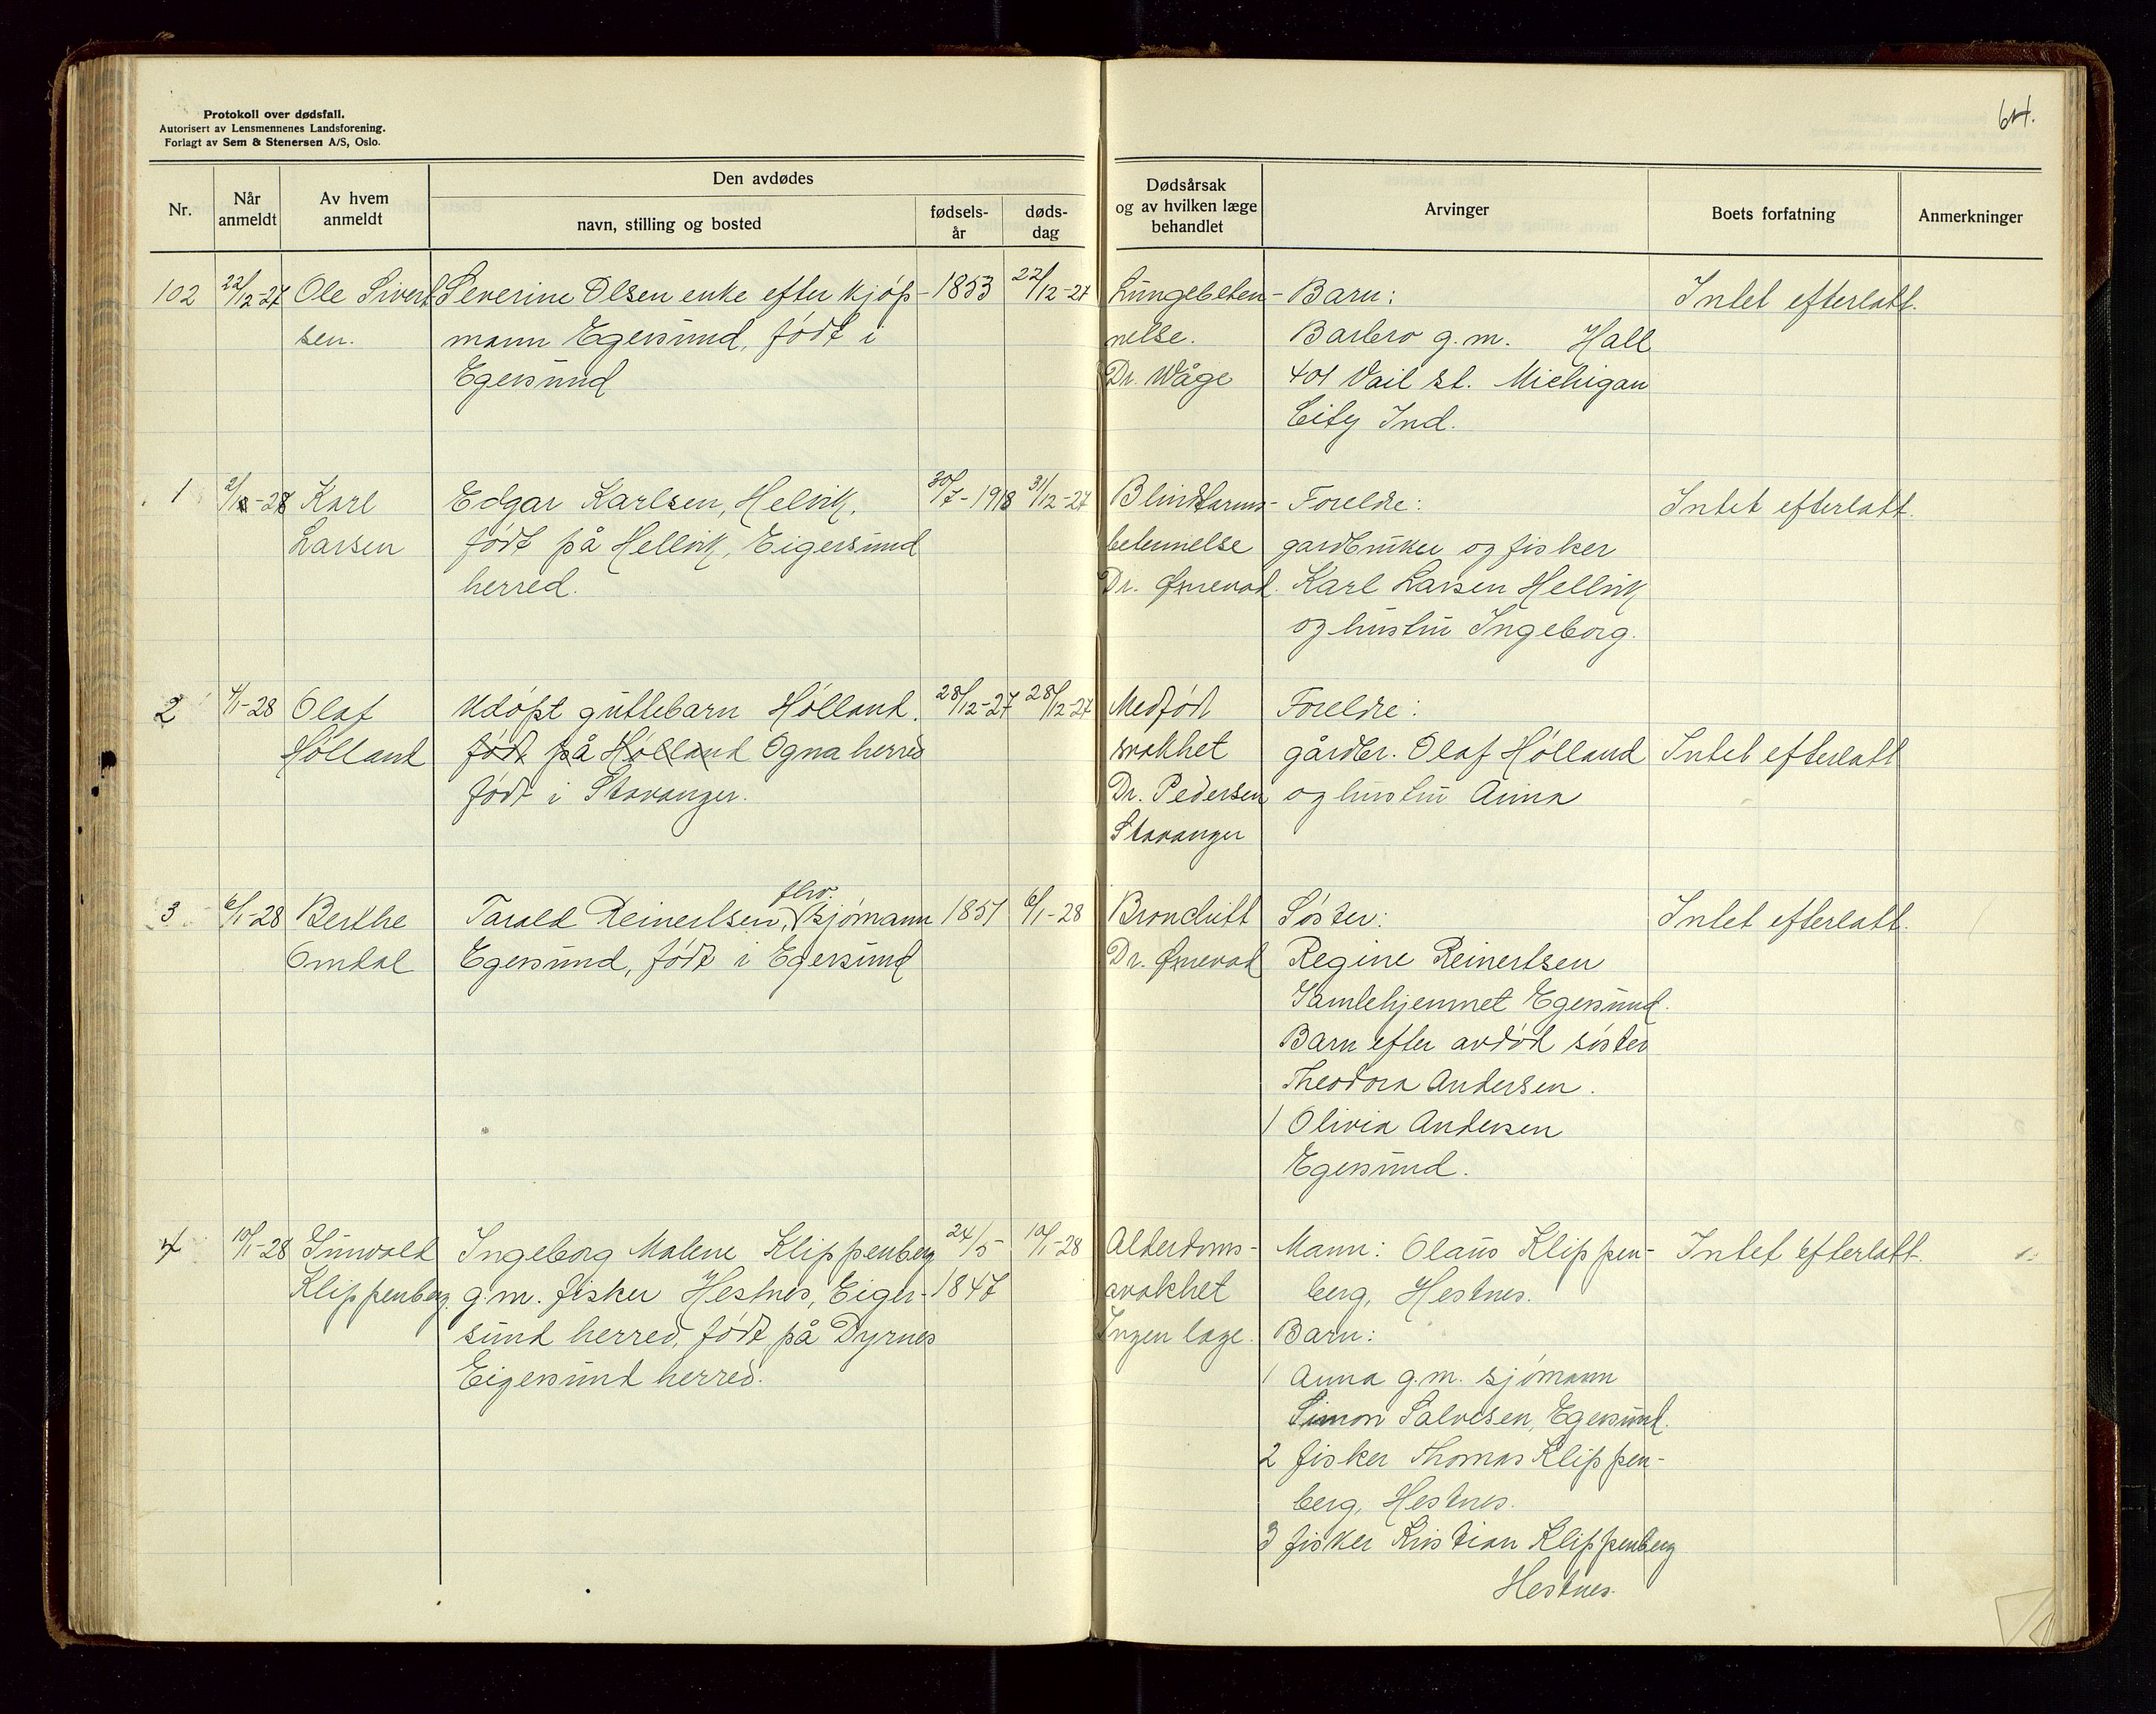 Protokoll over dødsfall.
Autorisert av Lensmennenes Landsforening.
Forlagt av Sem & Stenersen A/S, Oslo.
64.
Nr.
Når anmeldt
Av hvem anmeldt
Den avdødes
navn, stilling og bosted
fødsels-år
døds-dag
Dødsårsak og av hvilken læge behandlet
Arvinger
Boets forfatning
Anmerkninger
102
22/12-27
Ole Sivert
sen.
Severine Olsen enke efter kjøp-
mann Egersund, født i
Egersund
1853
22/12-27
Lungebeten-
nelse.
Dr. Wåge
Barn:
Barbro g.m. Hall
401 Vail st. Michigan
City Ind.
Intet efterlatt.
1
2/1-28
Karl
Larsen
Edgar Karlsen, Helvik,
født på Hellvik, Eigersund
herred.
30/7-1918
31/12-27
Blindtarms-
betennelse
Dr. Ørnevad.
Foreldre:
gardbruker og fisker
Karl Larsen Hellvik
og hustru Ingeborg.
Intet efterlatt.
2
4/1-28
Olaf
Hølland
Udøpt guttebarn Hølland.
født på Hølland Ogna herred
født i Stavanger.
28/12-27
28/12-27
Medfødt
svakhet
Dr. Pedersen
Stavanger
Foreldre:
gårdbr. Olaf Hølland
og hustru Anna
Intet efterlatt
3
6/1-28
Berthe
Omdal
fhv.
Tarald Reinertsen, sjømann
Egersund, født i Egersund
1857
6/1-28
Bronchitt
Dr. Ørnevad
Søster:
Regine Reinertsen
Gamlehjemmet Egersund.
Barn efter avdød søster
Theodora Andersen.
1 Olivia Andersen
Egersund.
Intet efterlatt.
4
10/1-28
Gunvald
Klippenberg
Ingeborg Malene Klippenberg
g.m. fisker Hestnes, Eiger-
sund herred, født på Dyrnes
Eigersund herred.
24/5
1847
10/1-28
Alderdoms-
svakhet
Ingen læge.
Mann: Olaus Klippen-
berg, Hestnes.
Barn:
1 Anna g.m. sjømann
Simon Salvesen, Egersund.
2 fisker Thomas Klippen-
berg, Hestnes.
3 fisker Kristian Klippenberg
Hestnes.
Intet efterlatt.